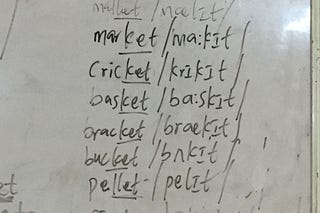 mallet /mælIt/
market /ma:kIt/
cricket /krIkIt/
basket /ba:skIt/
bracket /braekIt/
bucket /bʌkIt/
pellet /pelIt/
et